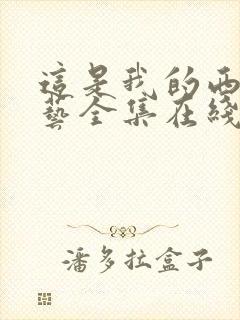 這是我的西
藝全集在綫
潘多拉盒子